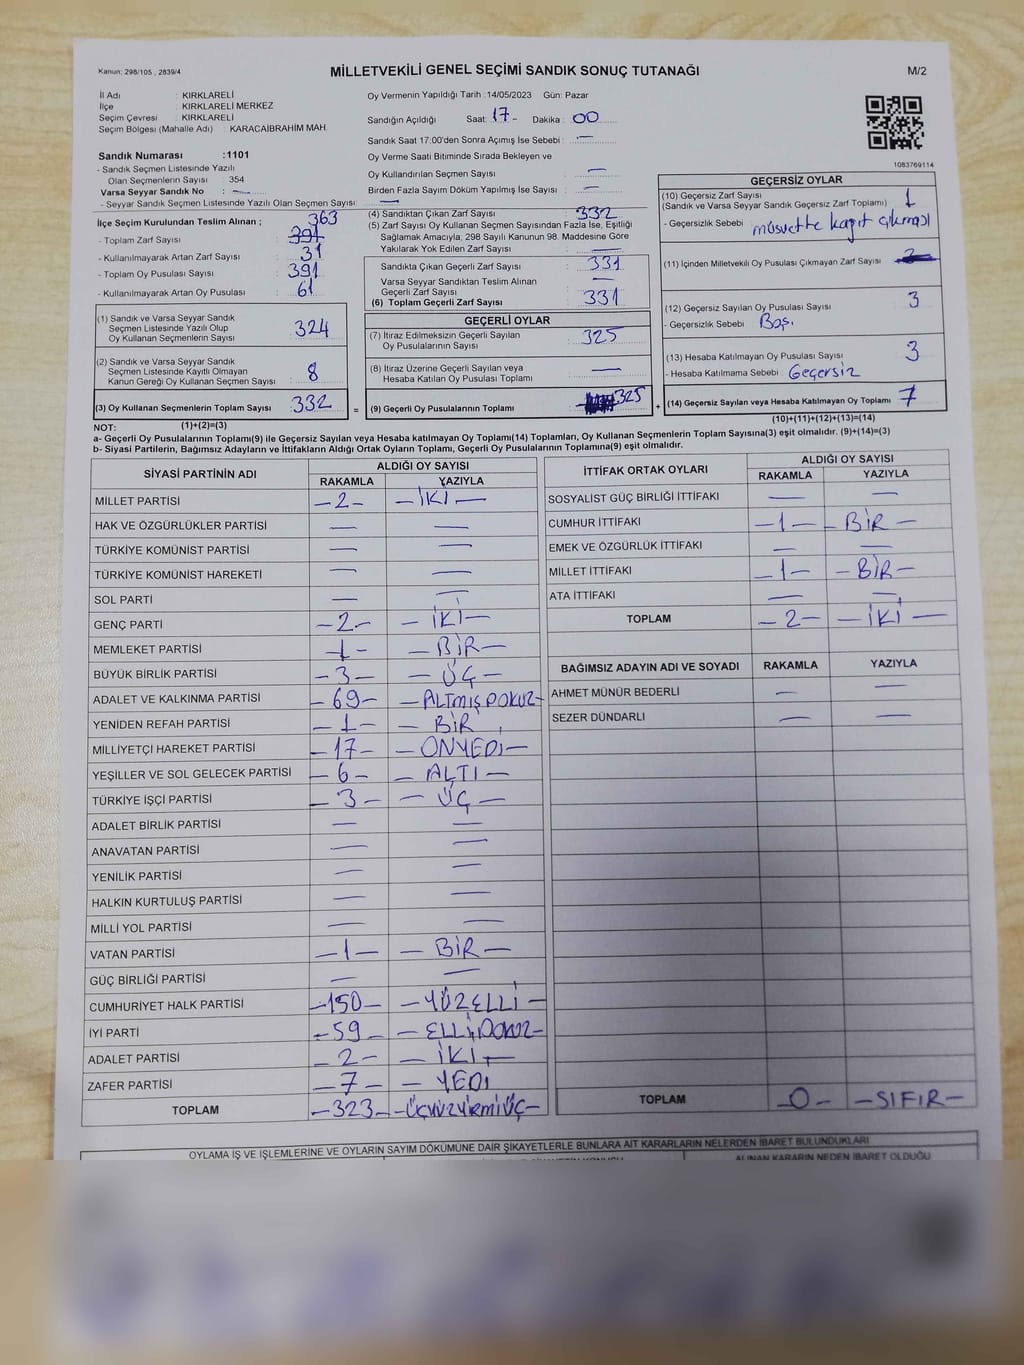 Kanun: 298/105 , 2839/4
MİLLETVEKİLİ GENEL SEÇİMİ SANDIK SONUÇ TUTANAĞI
M/2
İl Adı : KIRKLARELİ
İlçe : KIRKLARELİ MERKEZ
Seçim Çevresi : KIRKLARELİ
Seçim Bölgesi (Mahalle Adı) : KARACAİBRAHİM MAH.
Sandık Numarası :1101
- Sandık Seçmen Listesinde Yazılı
Olan Seçmenlerin Sayısı : 354
Varsa Seyyar Sandık No : —
- Seyyar Sandık Seçmen Listesinde Yazılı Olan Seçmen Sayısı : —
Oy Vermenin Yapıldığı Tarih :14/05/2023 Gün: Pazar
Sandığın Açıldığı Saat: 17- Dakika : 00
Sandık Saat 17:00'den Sonra Açımış İse Sebebi : —
Oy Verme Saati Bitiminde Sırada Bekleyen ve
Oy Kullandırılan Seçmen Sayısı : —
Birden Fazla Sayım Döküm Yapılmış İse Sayısı : —
1083769114
İlçe Seçim Kurulundan Teslim Alınan ; 363
- Toplam Zarf Sayısı : 391
- Kullanılmayarak Artan Zarf Sayısı : 31
- Toplam Oy Pusulası Sayısı : 391
- Kullanılmayarak Artan Oy Pusulası : 61
(1) Sandık ve Varsa Seyyar Sandık
Seçmen Listesinde Yazılı Olup
Oy Kullanan Seçmenlerin Sayısı : 324
(2) Sandık ve Varsa Seyyar Sandık
Seçmen Listesinde Kayıtlı Olmayan
Kanun Gereği Oy Kullanan Seçmen Sayısı : 8
(3) Oy Kullanan Seçmenlerin Toplam Sayısı : 332
(1)+(2)=(3)
(4) Sandıktan Çıkan Zarf Sayısı : 332
(5) Zarf Sayısı Oy Kullanan Seçmen Sayısından Fazla İse, Eşitliği
Sağlamak Amacıyla, 298 Sayılı Kanunun 98. Maddesine Göre
Yakılarak Yok Edilen Zarf Sayısı : —
Sandıkta Çıkan Geçerli Zarf Sayısı : 331
Varsa Seyyar Sandıktan Teslim Alınan
Geçerli Zarf Sayısı : —
(6) Toplam Geçerli Zarf Sayısı : 331
GEÇERLİ OYLAR
(7) İtiraz Edilmeksizin Geçerli Sayılan
Oy Pusulalarının Sayısı : 325
(8) İtiraz Üzerine Geçerli Sayılan veya
Hesaba Katılan Oy Pusulası Toplamı : —
= (9) Geçerli Oy Pusulalarının Toplamı : 325 +
GEÇERSİZ OYLAR
(10) Geçersiz Zarf Sayısı
(Sandık ve Varsa Seyyar Sandık Geçersiz Zarf Toplamı) : 1
- Geçersizlik Sebebi : müsvette kağıt çıkması
(11) İçinden Milletvekili Oy Pusulası Çıkmayan Zarf Sayısı :
(12) Geçersiz Sayılan Oy Pusulası Sayısı : 3
- Geçersizlik Sebebi : Boş.
(13) Hesaba Katılmayan Oy Pusulası Sayısı : 3
- Hesaba Katılmama Sebebi : Geçersiz
(14) Geçersiz Sayılan veya Hesaba Katılmayan Oy Toplamı : 7
(10)+(11)+(12)+(13)=(14)
NOT:
a- Geçerli Oy Pusulalarının Toplamı(9) ile Geçersiz Sayılan veya Hesaba katılmayan Oy Toplamı(14) Toplamları, Oy Kullanan Seçmenlerin Toplam Sayısına(3) eşit olmalıdır. (9)+(14)=(3)
b- Siyasi Partilerin, Bağımsız Adayların ve İttifakların Aldığı Ortak Oyların Toplamı, Geçerli Oy Pusulalarının Toplamına(9) eşit olmalıdır.
SİYASİ PARTİNİN ADI ALDIĞI OY SAYISI
RAKAMLA YAZIYLA
MİLLET PARTİSİ -2- -İKİ-
HAK VE ÖZGÜRLÜKLER PARTİSİ — —
TÜRKİYE KOMÜNİST PARTİSİ — —
TÜRKİYE KOMÜNİST HAREKETİ — —
SOL PARTİ — —
GENÇ PARTİ -2- -İKİ-
MEMLEKET PARTİSİ -1- -BİR-
BÜYÜK BİRLİK PARTİSİ -3- -ÜÇ-
ADALET VE KALKINMA PARTİSİ -69- -ALTMIŞDOKUZ-
YENİDEN REFAH PARTİSİ -1- -BİR
MİLLİYETÇİ HAREKET PARTİSİ -17- -ONYEDİ-
YEŞİLLER VE SOL GELECEK PARTİSİ -6- -ALTI-
TÜRKİYE İŞÇİ PARTİSİ -3- -ÜÇ-
ADALET BİRLİK PARTİSİ — —
ANAVATAN PARTİSİ — —
YENİLİK PARTİSİ — —
HALKIN KURTULUŞ PARTİSİ — —
MİLLİ YOL PARTİSİ — —
VATAN PARTİSİ -1- -BİR-
GÜÇ BİRLİĞİ PARTİSİ — —
CUMHURİYET HALK PARTİSİ -150- -YÜZELLİ-
İYİ PARTİ -59- -ELLİDOKUZ-
ADALET PARTİSİ -2- -İKİ-
ZAFER PARTİSİ -7- -YEDİ
TOPLAM -323- -ÜÇYÜZYİRMİÜÇ-
İTTİFAK ORTAK OYLARI ALDIĞI OY SAYISI
RAKAMLA YAZIYLA
SOSYALİST GÜÇ BİRLİĞİ İTTİFAKI — —
CUMHUR İTTİFAKI -1- -BİR-
EMEK VE ÖZGÜRLÜK İTTİFAKI — —
MİLLET İTTİFAKI -1- -BİR-
ATA İTTİFAKI — —
TOPLAM -2- -İKİ-
BAĞIMSIZ ADAYIN ADI VE SOYADI RAKAMLA YAZIYLA
AHMET MÜNÜR BEDERLİ — —
SEZER DÜNDARLI — —
TOPLAM -0- -SIFIR-
OYLAMA İŞ VE İŞLEMLERİNE VE OYLARIN SAYIM DÖKÜMÜNE DAİR ŞİKAYETLERLE BUNLARA AİT KARARLARIN NELERDEN İBARET BULUNDUKLARI
ALINAN KARARIN NEDEN İBARET OLDUĞU